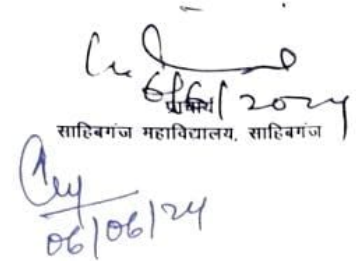 6/6/2024
प्राचार्य
साहिबगंज महाविद्यालय, साहिबगंज
06/06/24